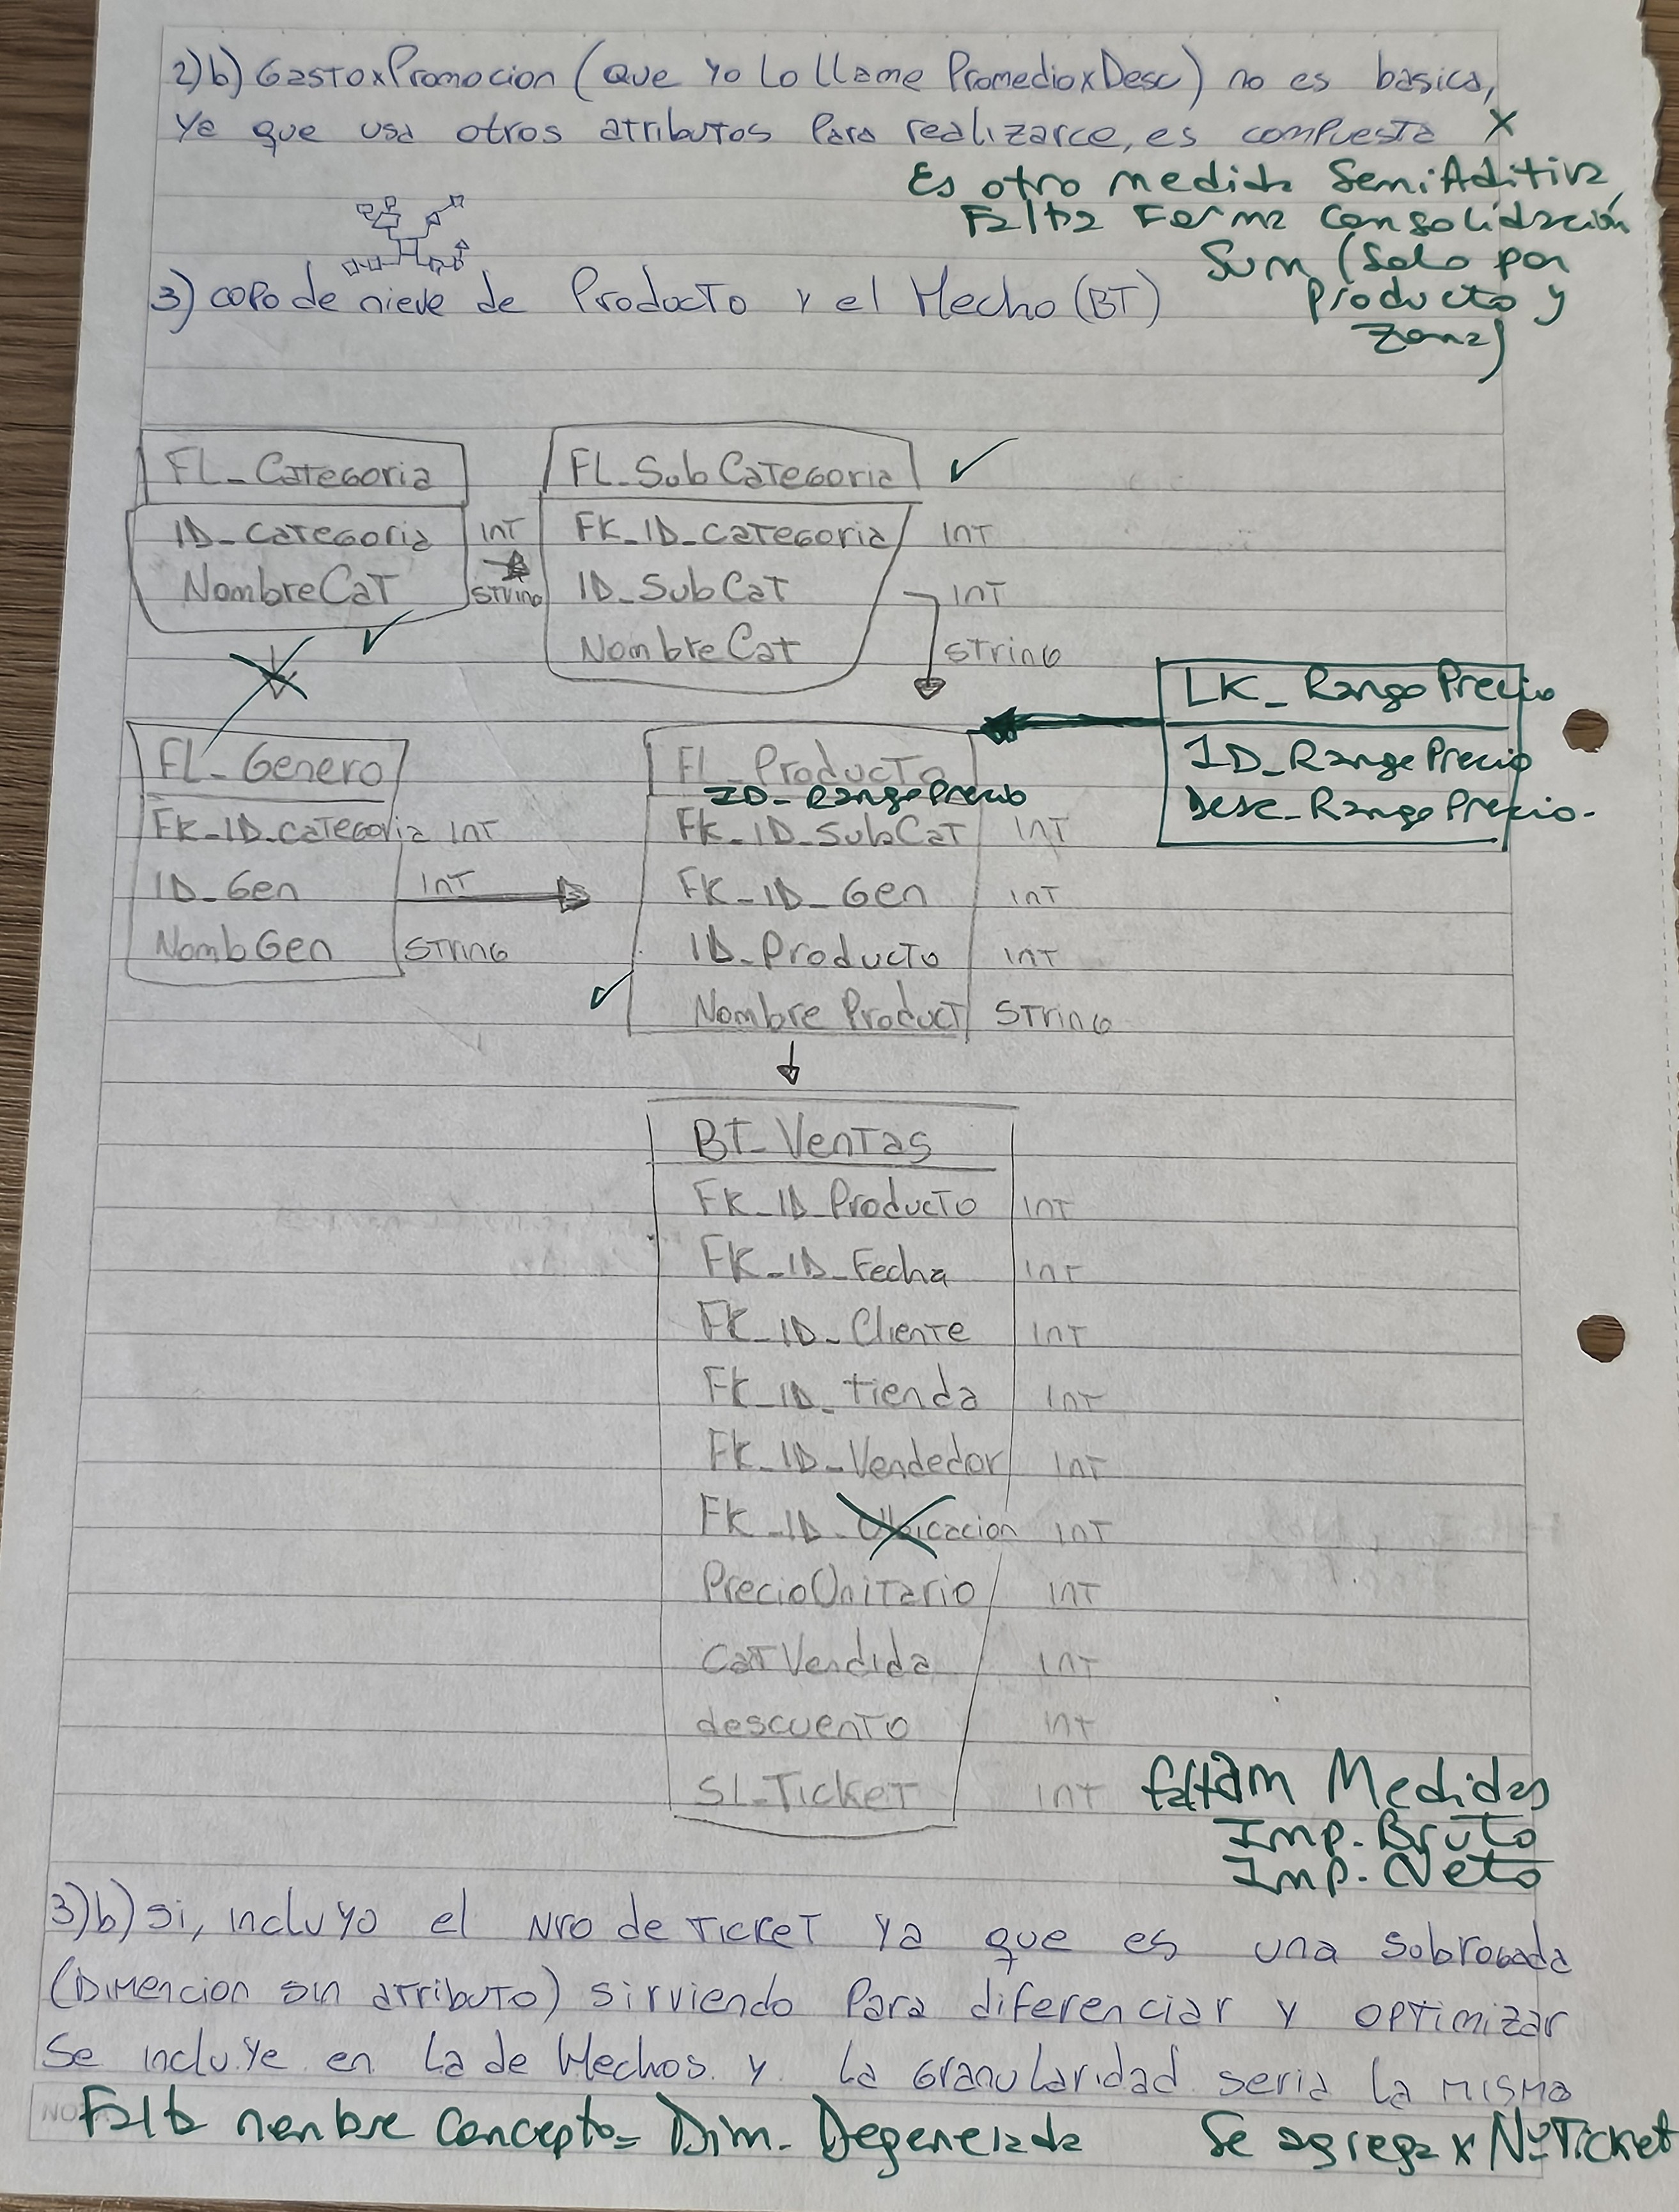 2)b) GastoxPromocion (Que Yo Lo llame PromedioxDesc) no es basica,
Ya que usa otros atributos Para realizarce, es compuesta X
Es otro medida SemiAditiva
Falta Forma Consolidación
Sum (Solo por
Producto y
Zona)
3) copo de nieve de Producto y el Hecho (BT)
FL_Categoria
ID_Categoria INT
NombreCat STring
FL_SubCategoria ✓
FK_ID_Categoria INT
ID_SubCat INT
NombreCat STring
LK_RangoPrecio
ID_RangePrecio
Desc_RangoPrecio.
FL_Genero
FK_ID_Categoria INT
ID_Gen INT
NombGen STring
FL_Producto
ID_RangoPrecio
FK_ID_SubCat INT
FK_ID_Gen INT
ID_Producto INT
Nombre Product STring
BT_Ventas
FK_ID_Producto INT
FK_ID_Fecha INT
FK_ID_Cliente INT
FK_ID_tienda INT
FK_ID_Vendedor INT
FK_ID_Ubicacion INT
PrecioUnitario INT
CatVendida INT
descuento INT
SL_Ticket INT
faltam Medidas
Imp. Bruto
Imp. Neto
3)b) si, incluyo el Nro de Ticket Ya que es una Sobrogada
(Dimencion sin atributo) sirviendo Para diferenciar y optimizar
Se incluye en La de Hechos y La Granularidad seria La misma
Falta nenbre Concepto= Dim. Degenerada Se agrega x NºTicket